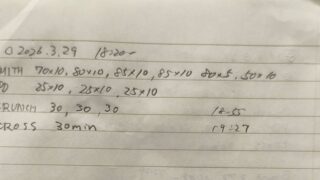 2026.3.29 18:20~
MITH 70x10, 80x10, 85x10, 85x10 80x5, 50x10
25x10, 25x10, 25x10
RUNCH 30, 30, 30 18:55
CROSS 30min 19:27